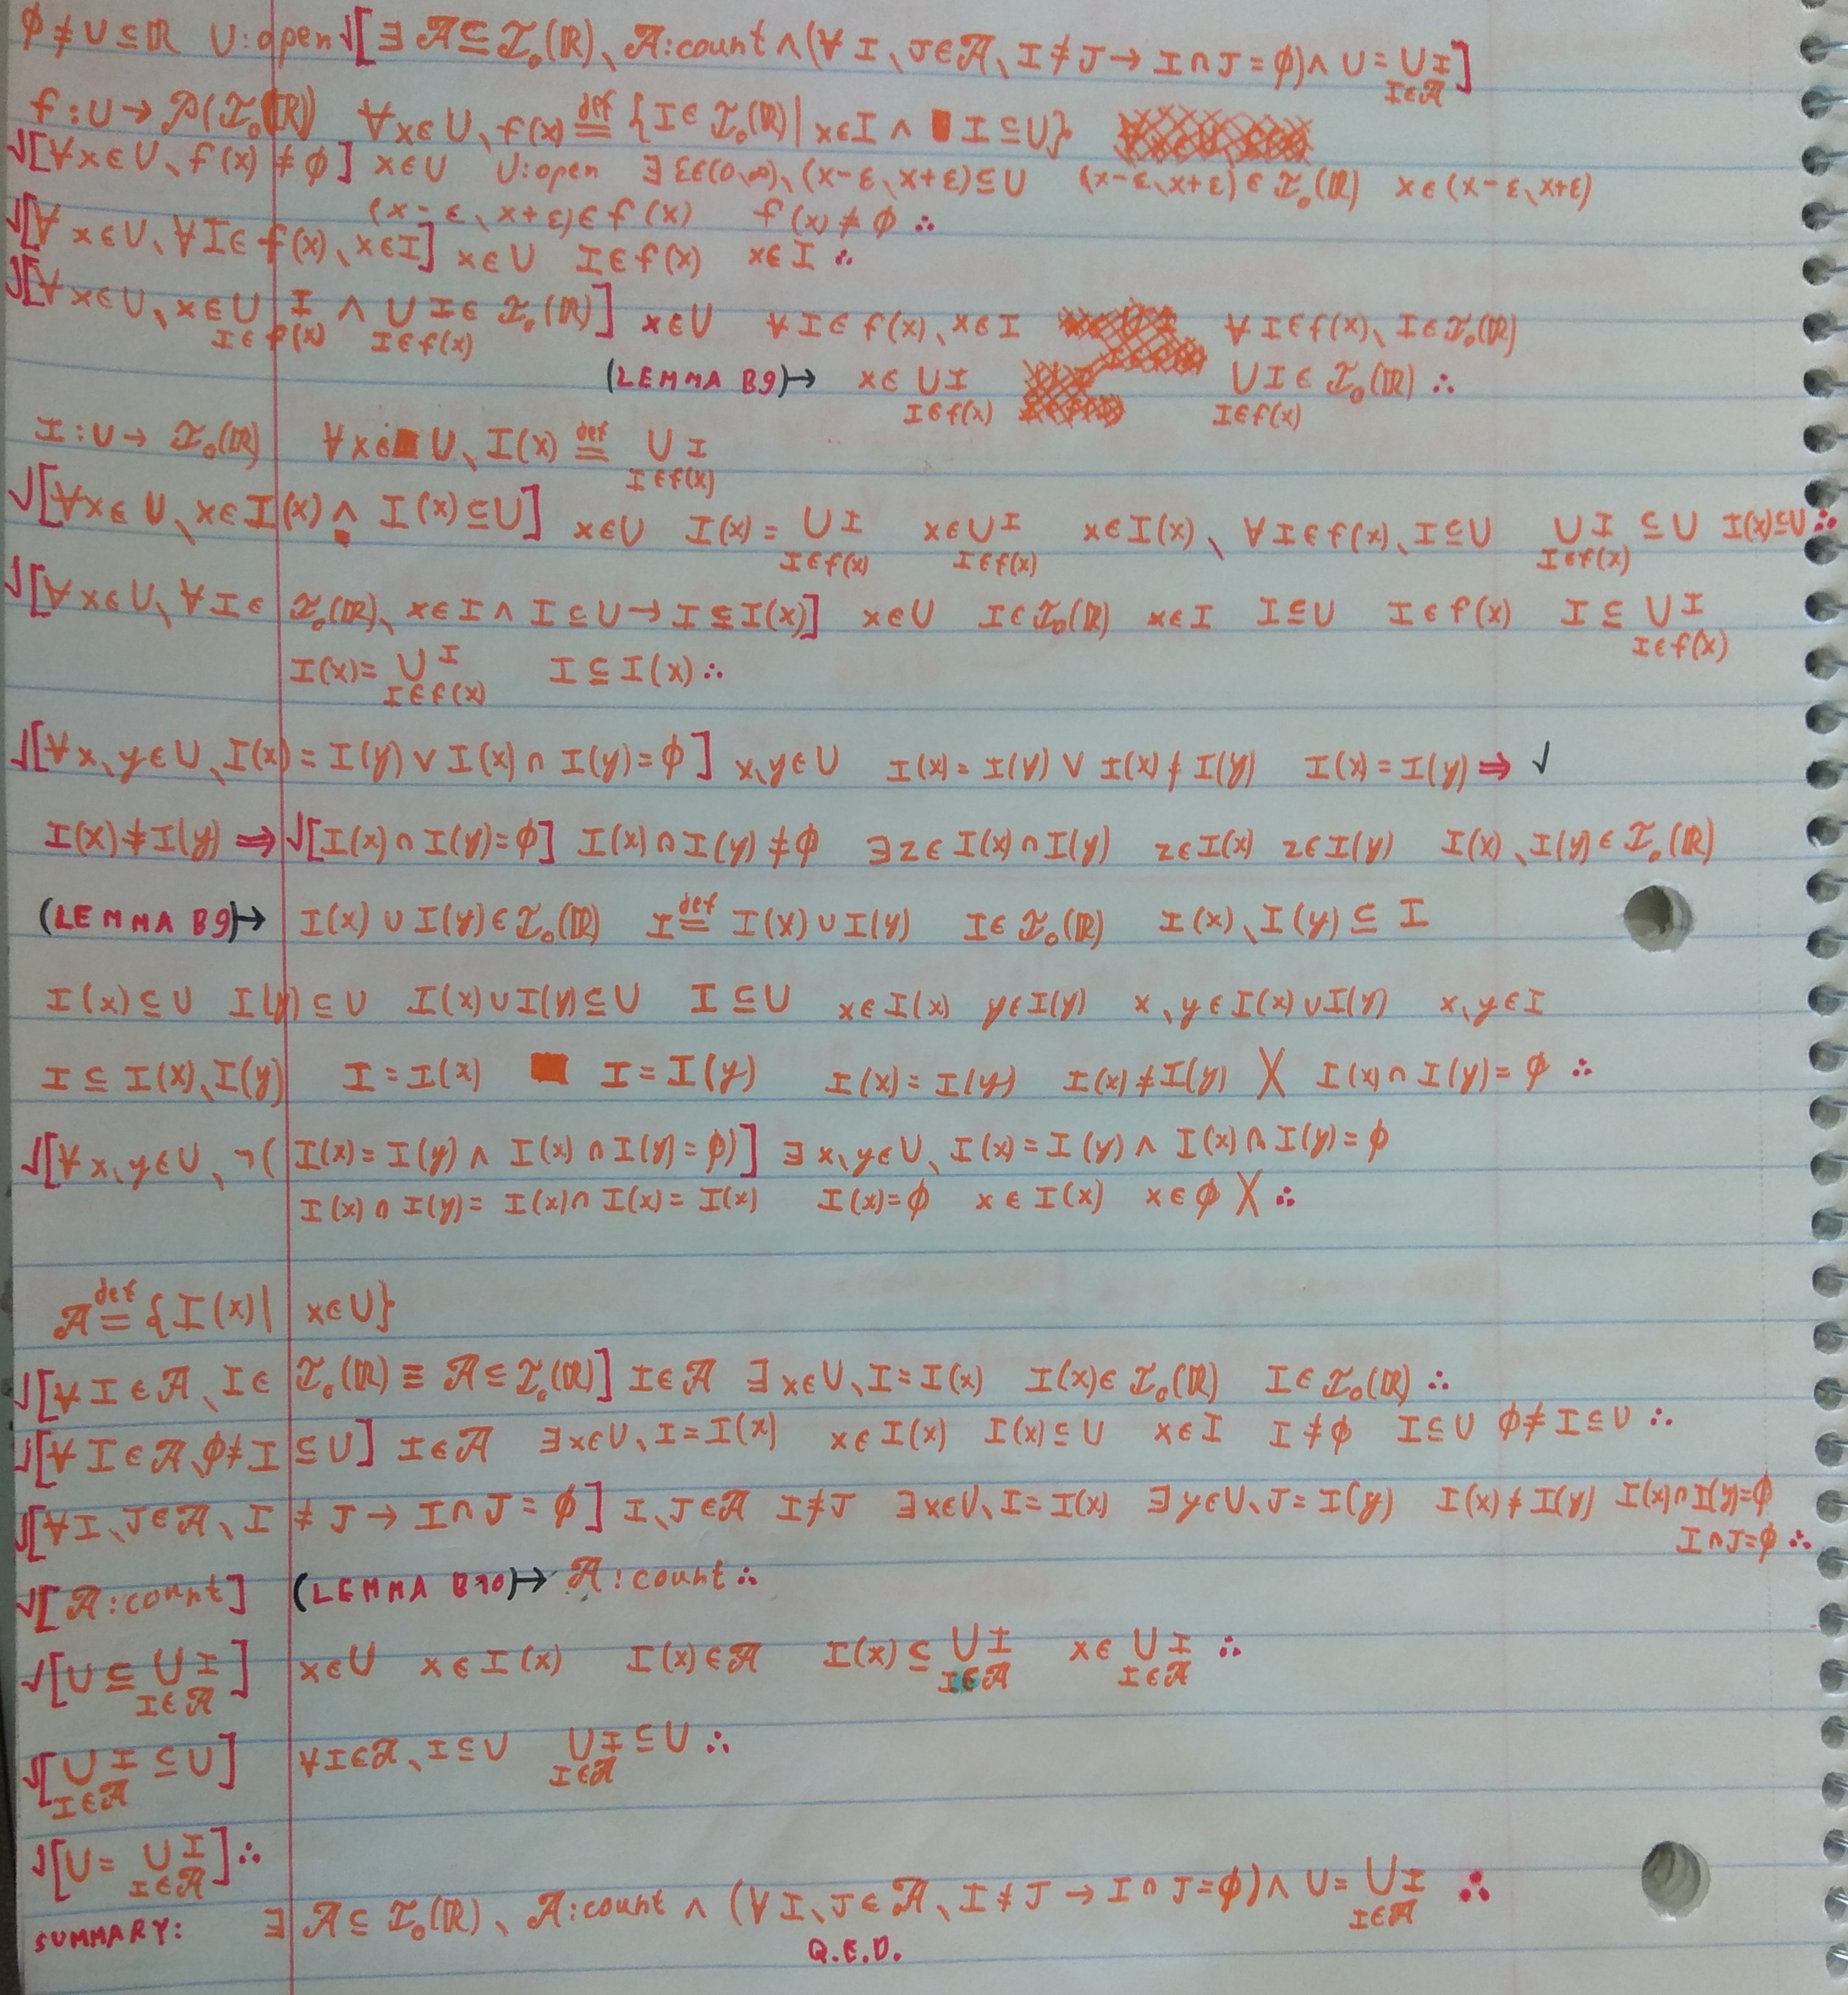 ∅≠U⊆ℝ U:open √[∃𝒜⊆ℐ₀(ℝ)、𝒜:count∧(∀I、J∈𝒜、I≠J→I∩J=∅)∧U=⋃_{I∈𝒜} I]
f:U→𝒫(ℐ₀(ℝ)) ∀x∈U、f(x) ≝ {I∈ℐ₀(ℝ)| x∈I ∧ I⊆U}
√[∀x∈U、f(x)≠∅] x∈U U:open ∃ε∈(0、∞)、(x-ε、x+ε)⊆U (x-ε、x+ε)∈ℐ₀(ℝ) x∈(x-ε、x+ε)
(x-ε、x+ε)∈f(x) f(x)≠∅ ∴
√[∀x∈U、∀I∈f(x)、x∈I] x∈U I∈f(x) x∈I ∴
√[∀x∈U、x∈⋃_{I∈f(x)} I ∧ ⋃_{I∈f(x)} I∈ℐ₀(ℝ)] x∈U ∀I∈f(x)、x∈I ∀I∈f(x)、I∈ℐ₀(ℝ)
(LEMMA B9)↦ x∈⋃_{I∈f(x)} I ⋃_{I∈f(x)} I∈ℐ₀(ℝ) ∴
I:U→ℐ₀(ℝ) ∀x∈U、I(x) ≝ ⋃_{I∈f(x)} I
√[∀x∈U、x∈I(x) ∧ I(x)⊆U] x∈U I(x)=⋃_{I∈f(x)} I x∈⋃_{I∈f(x)} I x∈I(x)、∀I∈f(x)、I⊆U ⋃_{I∈f(x)} I⊆U I(x)⊆U ∴
√[∀x∈U、∀I∈ℐ₀(ℝ)、x∈I∧I⊆U→I⊆I(x)] x∈U I∈ℐ₀(ℝ) x∈I I⊆U I∈f(x) I⊆⋃_{I∈f(x)} I
I(x)=⋃_{I∈f(x)} I I⊆I(x) ∴
√[∀x、y∈U、I(x)=I(y)∨I(x)∩I(y)=∅] x、y∈U I(x)=I(y)∨I(x)≠I(y) I(x)=I(y)⇒ √
I(x)≠I(y)⇒√[I(x)∩I(y)=∅] I(x)∩I(y)≠∅ ∃z∈I(x)∩I(y) z∈I(x) z∈I(y) I(x)、I(y)∈ℐ₀(ℝ)
(LEMMA B9)↦ I(x)∪I(y)∈ℐ₀(ℝ) I ≝ I(x)∪I(y) I∈ℐ₀(ℝ) I(x)、I(y)⊆I
I(x)⊆U I(y)⊆U I(x)∪I(y)⊆U I⊆U x∈I(x) y∈I(y) x、y∈I(x)∪I(y) x、y∈I
I⊆I(x)、I(y) I=I(x) I=I(y) I(x)=I(y) I(x)≠I(y) X I(x)∩I(y)=∅ ∴
√[∀x、y∈U、¬(I(x)=I(y)∧I(x)∩I(y)=∅)] ∃x、y∈U、I(x)=I(y)∧I(x)∩I(y)=∅
I(x)∩I(y)=I(x)∩I(x)=I(x) I(x)=∅ x∈I(x) x∈∅ X ∴
𝒜 ≝ {I(x)| x∈U}
√[∀I∈𝒜、I∈ℐ₀(ℝ)≡𝒜⊆ℐ₀(ℝ)] I∈𝒜 ∃x∈U、I=I(x) I(x)∈ℐ₀(ℝ) I∈ℐ₀(ℝ) ∴
√[∀I∈𝒜、∅≠I⊆U] I∈𝒜 ∃x∈U、I=I(x) x∈I(x) I(x)⊆U x∈I I≠∅ I⊆U ∅≠I⊆U ∴
√[∀I、J∈𝒜、I≠J→I∩J=∅] I、J∈𝒜 I≠J ∃x∈U、I=I(x) ∃y∈U、J=I(y) I(x)≠I(y) I(x)∩I(y)=∅
I∩J=∅ ∴
√[𝒜:count] (LEMMA B10)↦ 𝒜:count ∴
√[U⊆⋃_{I∈𝒜} I] x∈U x∈I(x) I(x)∈𝒜 I(x)⊆⋃_{I∈𝒜} I x∈⋃_{I∈𝒜} I ∴
√[⋃_{I∈𝒜} I⊆U] ∀I∈𝒜、I⊆U ⋃_{I∈𝒜} I⊆U ∴
√[U=⋃_{I∈𝒜} I] ∴
SUMMARY: ∃𝒜⊆ℐ₀(ℝ)、𝒜:count∧(∀I、J∈𝒜、I≠J→I∩J=∅)∧U=⋃_{I∈𝒜} I ∴
Q.E.D.